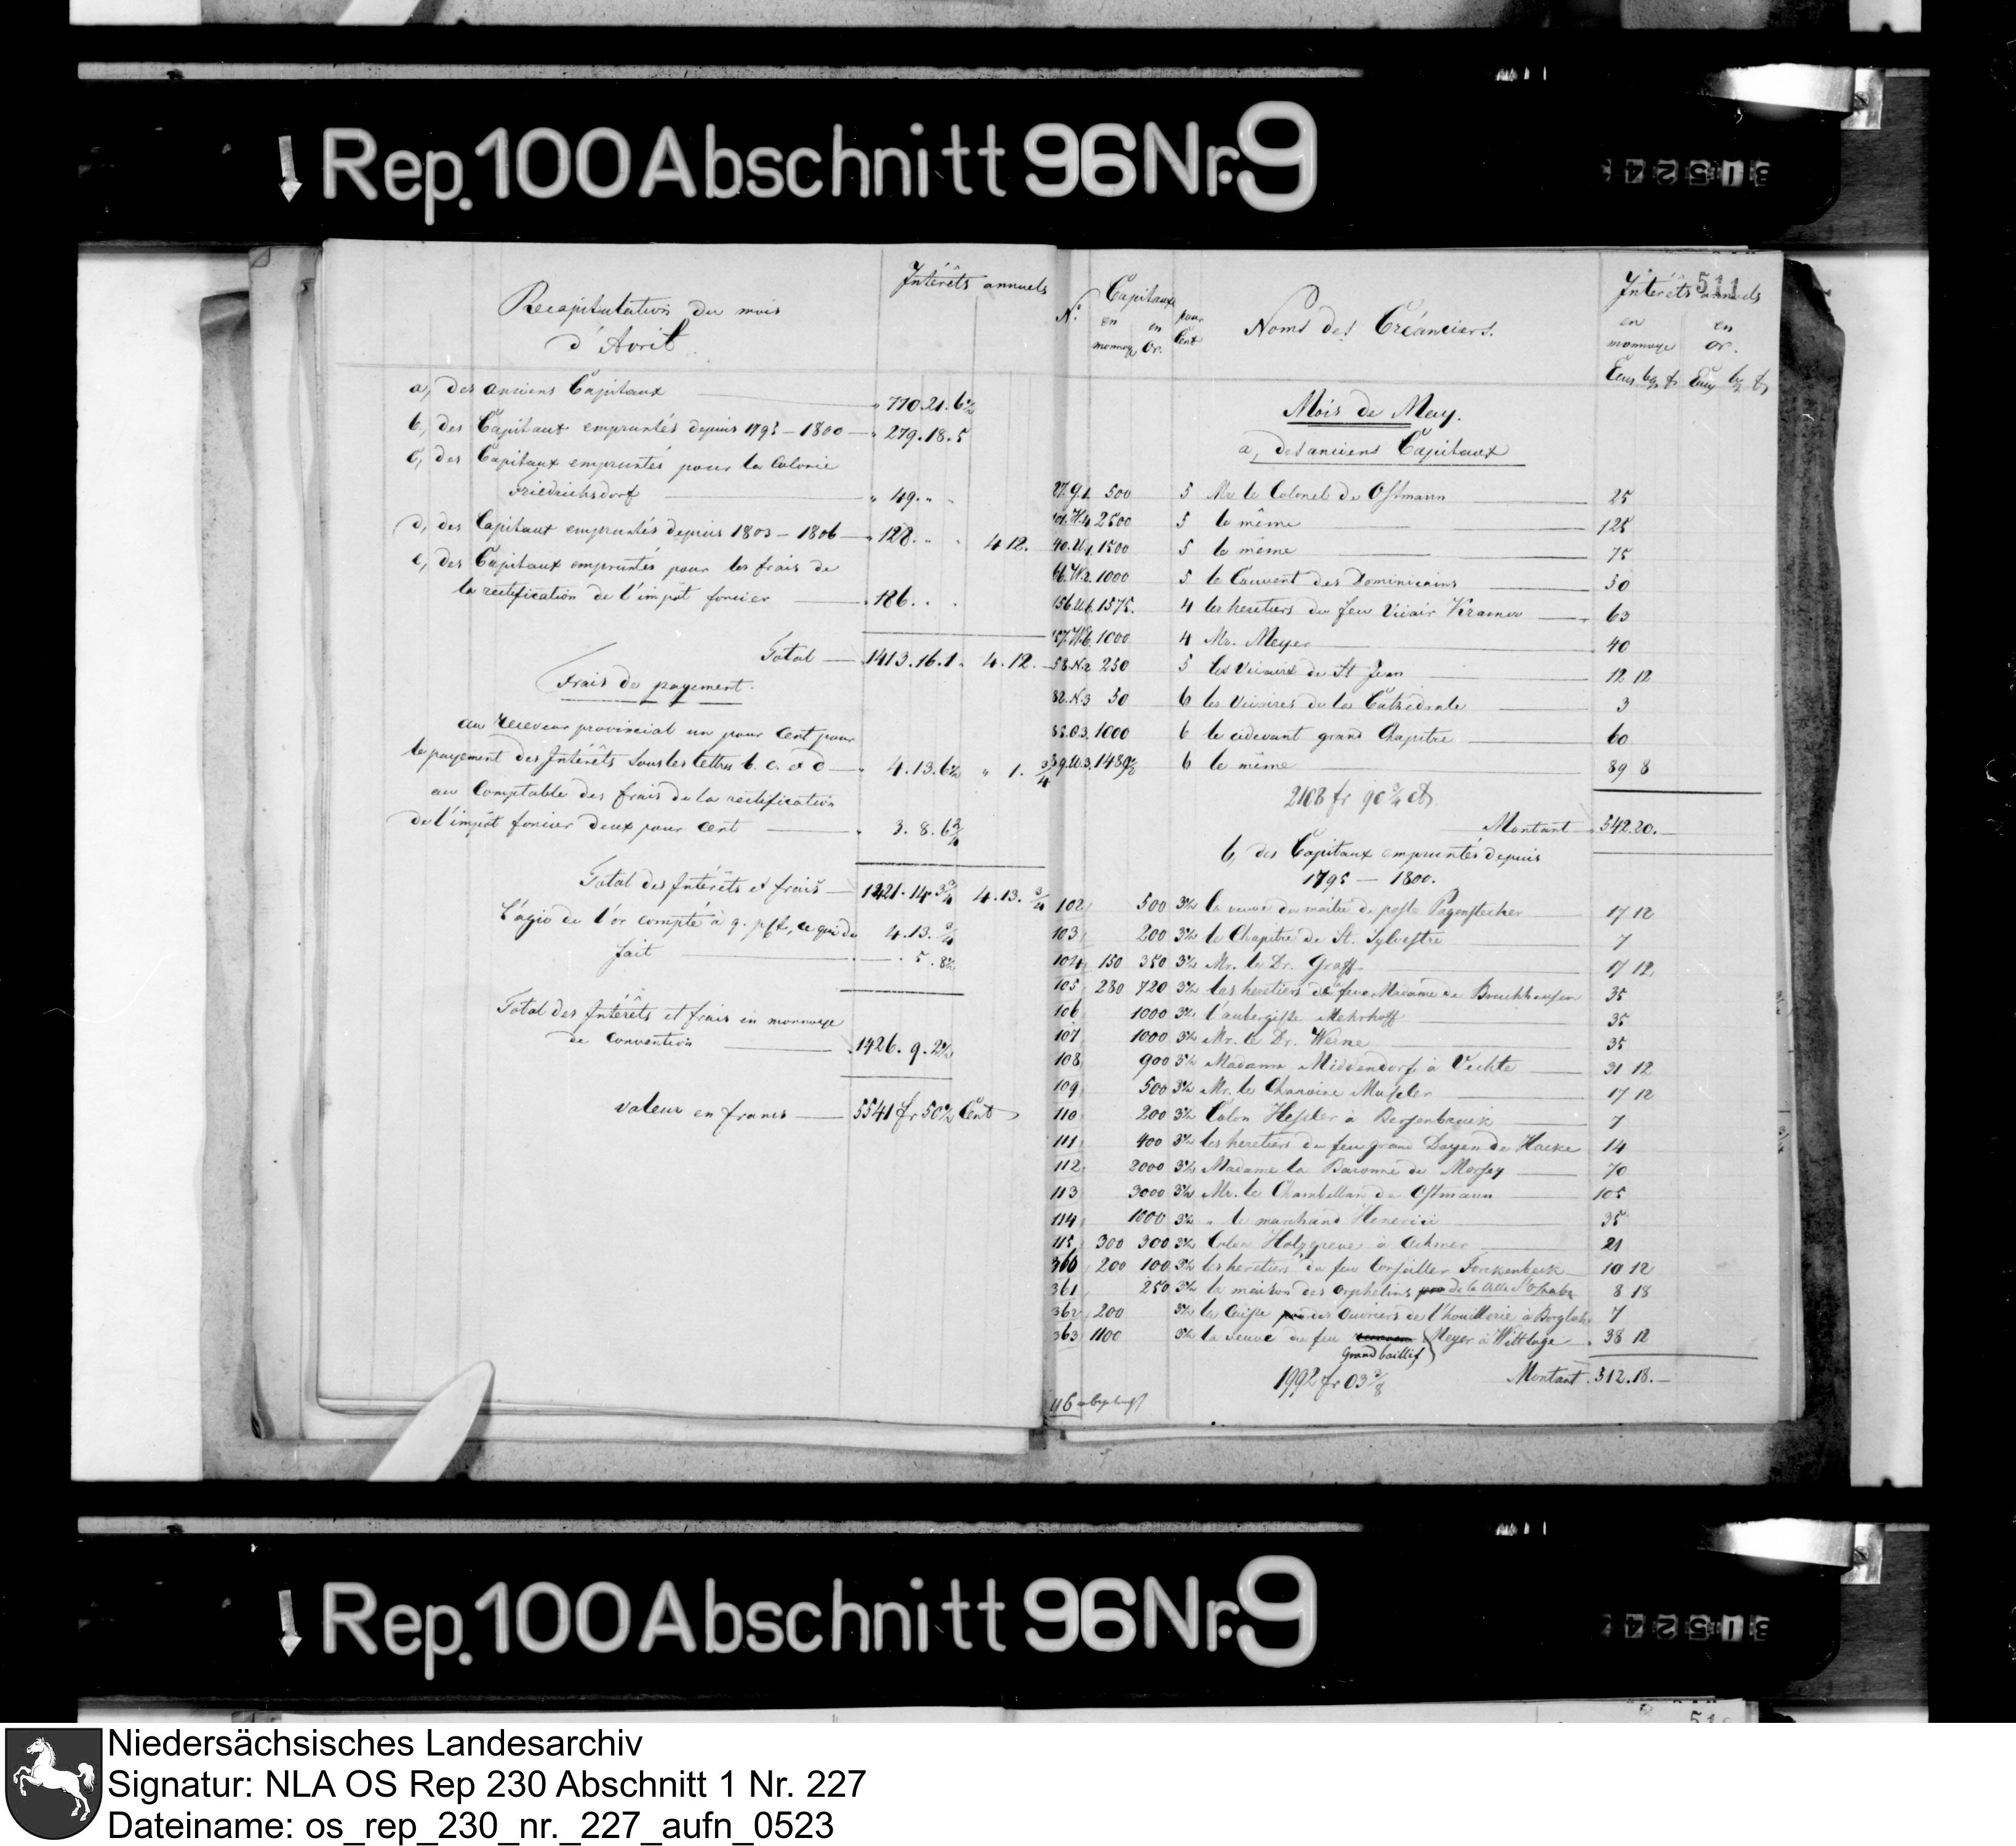 Rep. 100 Abschnitt 96 Nr. 9
31524
Recapitulation du mois
d'Avril
Intérêts annuels
a, des anciens Capitaux 770.21.6½
b, des Capitaux empruntés depuis 1795 - 1800 279.18.5
c, des Capitaux empruntés pour la Colonie
Friedrichsdorf 49. " "
d, des Capitaux empruntés depuis 1803 - 1806 128. " " 4 12.
e, des Capitaux empruntés pour les frais de
la rectification de l'impôt foncier 186. " "
Total 1413.16.1. 4.12.
Frais de payement.
au receveur provincial un pour Cent pour
le payement des Intérêts sous les lettres b. c. et d 4.13.6½ " 1. ¾
au Comptable des frais de la rectification
de l'impôt foncier deux pour Cent 3.8.6
Total des Intérêts et frais 1421.14.3 4.13. ¾
L'agio de l'or compté à 9. p Ct, ce qui de 4.13.
fait 5.8
Total des Intérêts et frais en monnoye
de Convention 1426.9.2
Valeur en francs 5541 fr 50½ Cent
511
No. Capitaux en monnoye en Or. pour Cent Noms des Créanciers. Intérêts annuels en monnoye en or.
Mois de May.
a, des anciens Capitaux
500 5 Mr le Colonel de Ostmann 25
2500 5 le même 125
1500 5 le même 75
1000 5 le Couvent des Dominicains 50
1575. 4 les heretiers du feu Vicair Kramer 63
1000 4 Mr. Meyer 40
250 5 les Vicaires de St Jean 12 12
50 6 les Vicaires de la Catredrale 3
1000 6 le cidevant grand Chapitre 60
6 le même 89 8
2108 fr 90¾ Ct
Montant 542.20.
b, des Capitaux empruntés depuis
1795 — 1800.
102 500 3½ la veuve du maitre de poste Pagenstecher 17 12
103 200 3½ le Chapitre de St. Sylvestre 7
104 150 350 3½ Mr. le Dr. Graff 17 12
105 280 720 3½ les heretiers de feue Madame de Bruchhausen 35
106 1000 3½ l'aubergiste Mehrhoff 35
107 1000 3½ Mr. le Dr. Weine 35
108 900 3½ Madame Middendorf à Vechte 31 12
109 500 3½ Mr. le Chanoine 17 12
110 200 3½ Colon à Bersenbrück 7
111 400 3½ les heretiers du feu grand Doyen de Hacke 14
112 2000 3½ Madame la Baronne de Morsey 70
113 3000 3½ Mr. le Chambellan de Ostmann 105
114 1000 3½ " le marchand Henerici 35
115 300 300 3½ Colon Holzgreve à Achmer 21
360 200 100 3½ les heretiers du feu Forckenbeck 10 12
361 250 3½ la maison des orphelins de la Ville d'Osnabr. 8 18
362 200 3½ la Caisse des ouvriers de l'houillerie à Borgloh 7
363 1100 3½ la veuve du feu Grand baillif Meyer à Wittlage 38 12
1992 fr 03⅜
Montant 512.18.—
Rep. 100 Abschnitt 96 Nr. 9
31524
Niedersächsisches Landesarchiv
Signatur: NLA OS Rep 230 Abschnitt 1 Nr. 227
Dateiname: os_rep_230_nr._227_aufn_0523